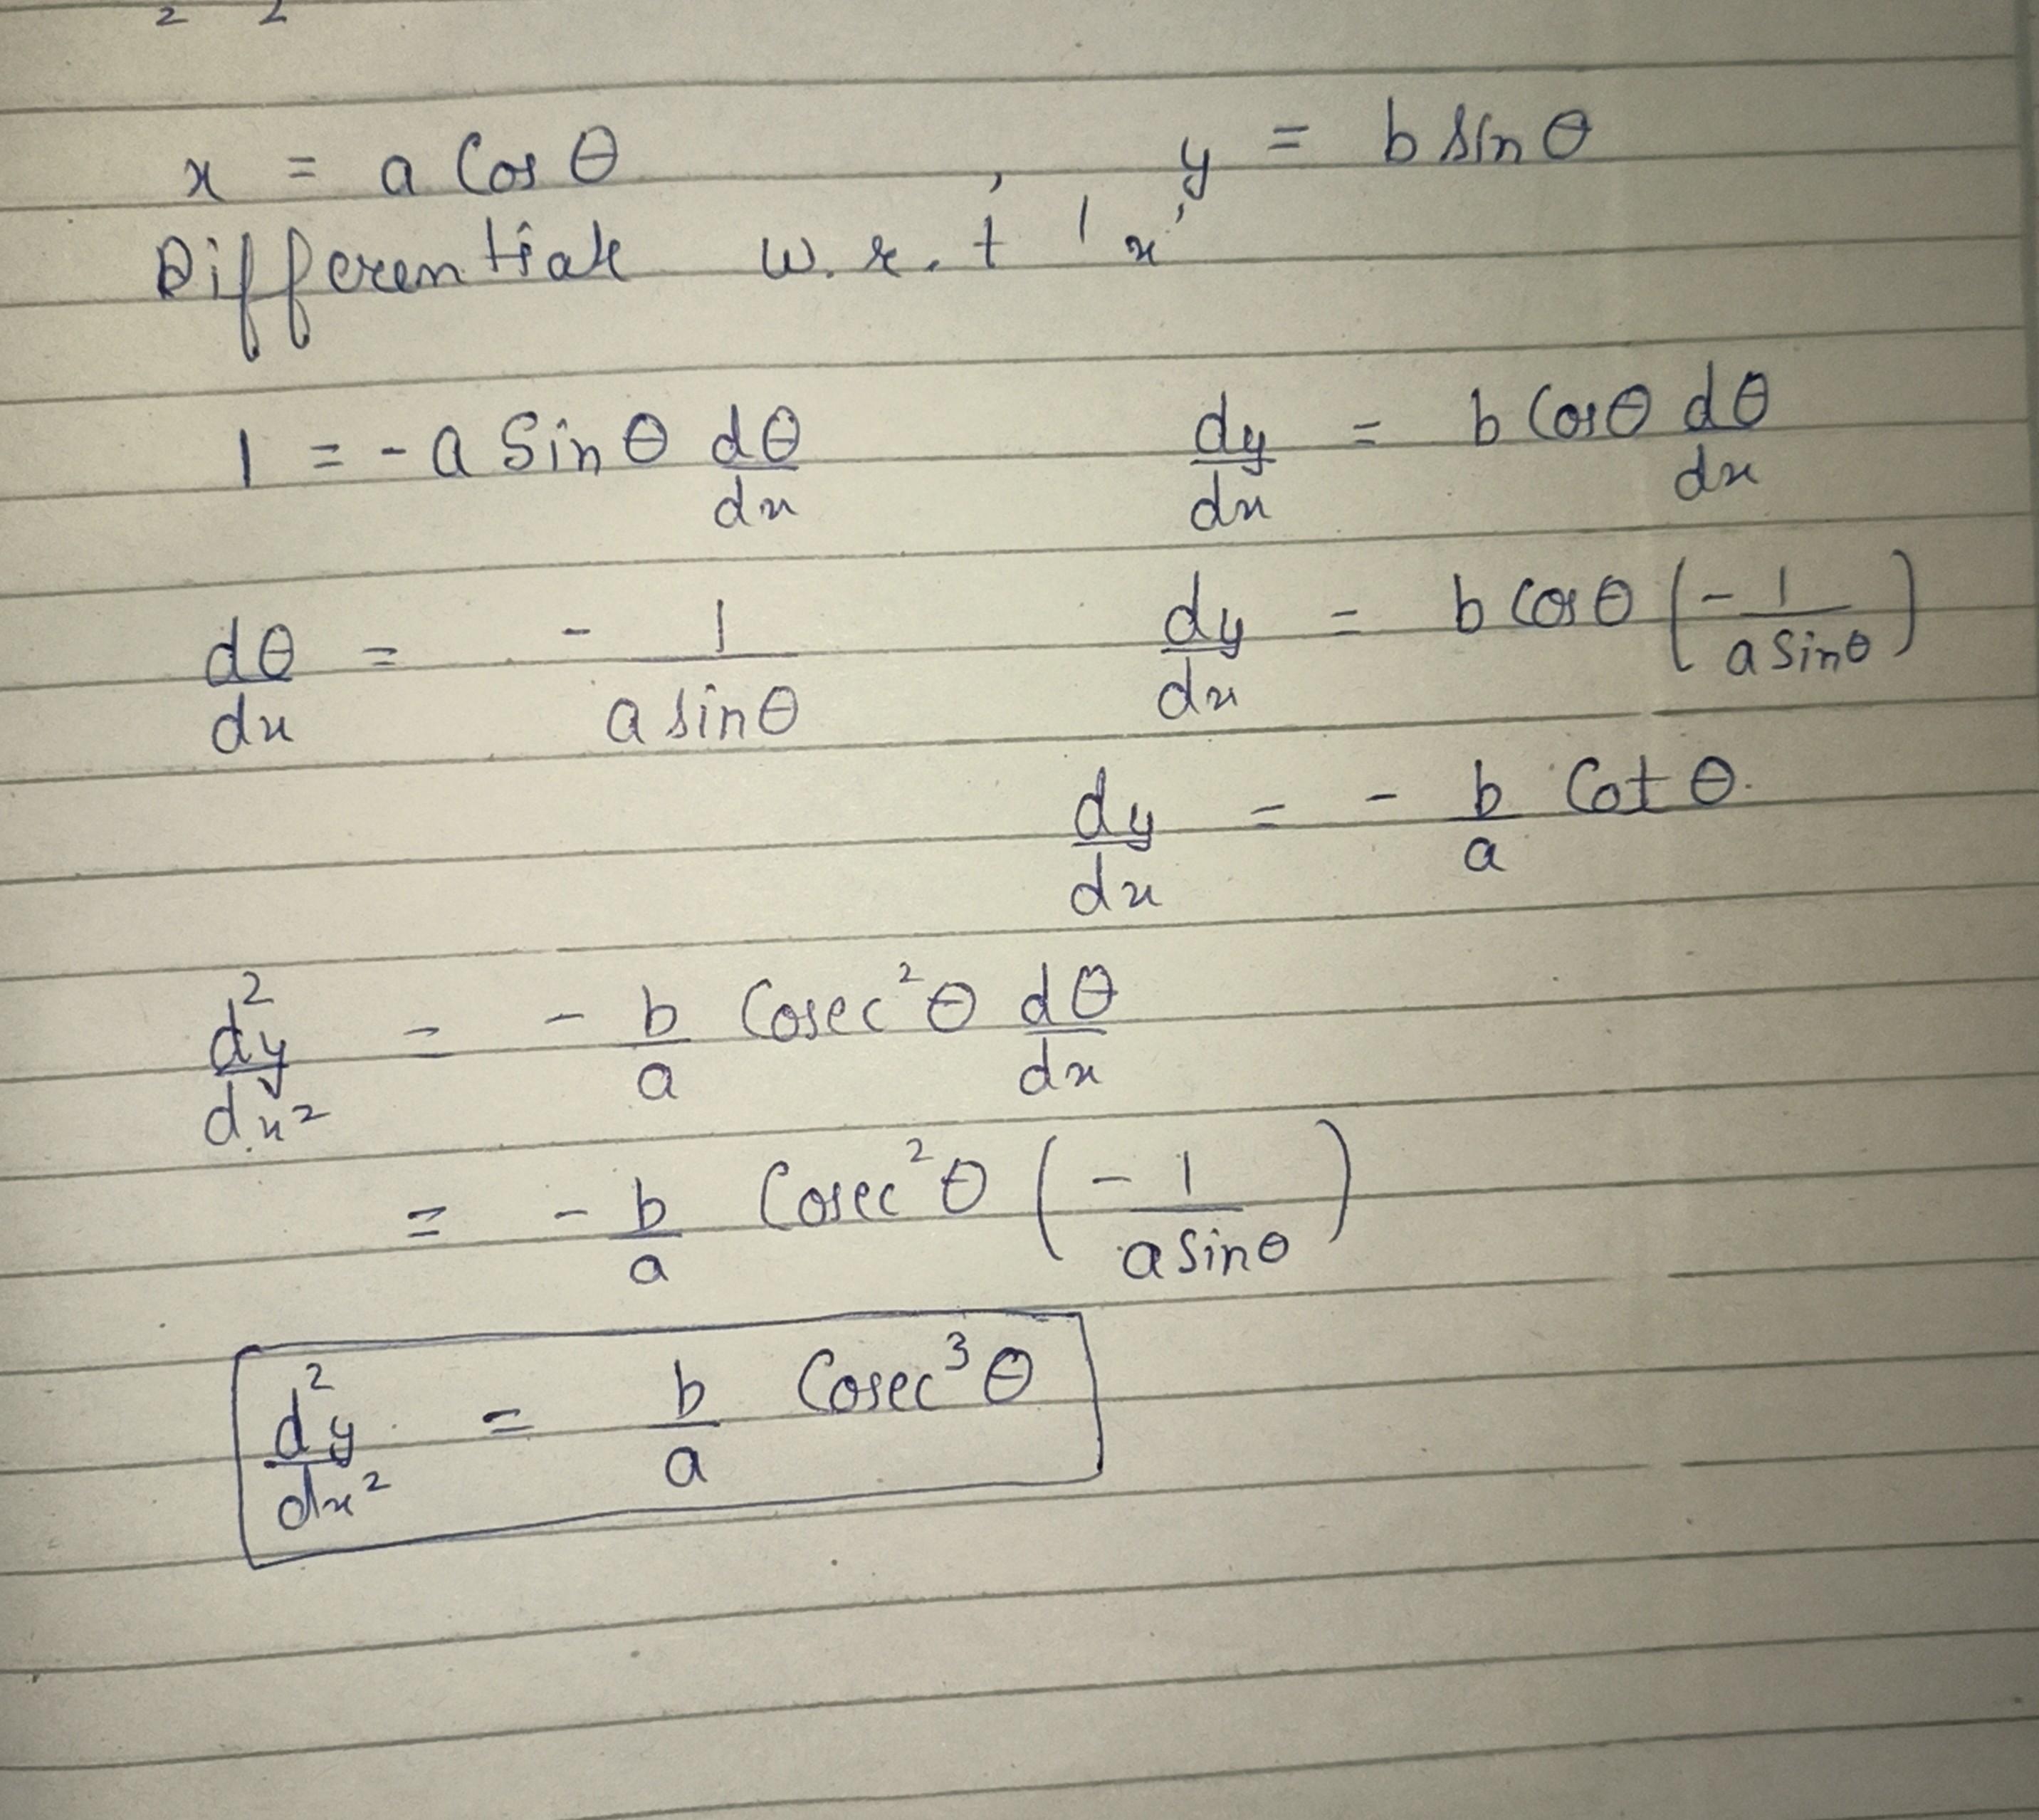 2 2
x = a Cos θ , y = b sin θ
Differentiate w.r.t 'x'
1 = - a Sin θ dθ/dx dy/dx = b Cos θ dθ/dx
dθ/dx = - 1/(a sin θ) dy/dx = b Cos θ (- 1/(a Sin θ))
dy/dx = - b/a Cot θ.
d²y/dx² = - b/a Cosec² θ dθ/dx
= - b/a Cosec² θ (- 1/(a Sin θ))
d²y/dx² = b/a Cosec³ θ